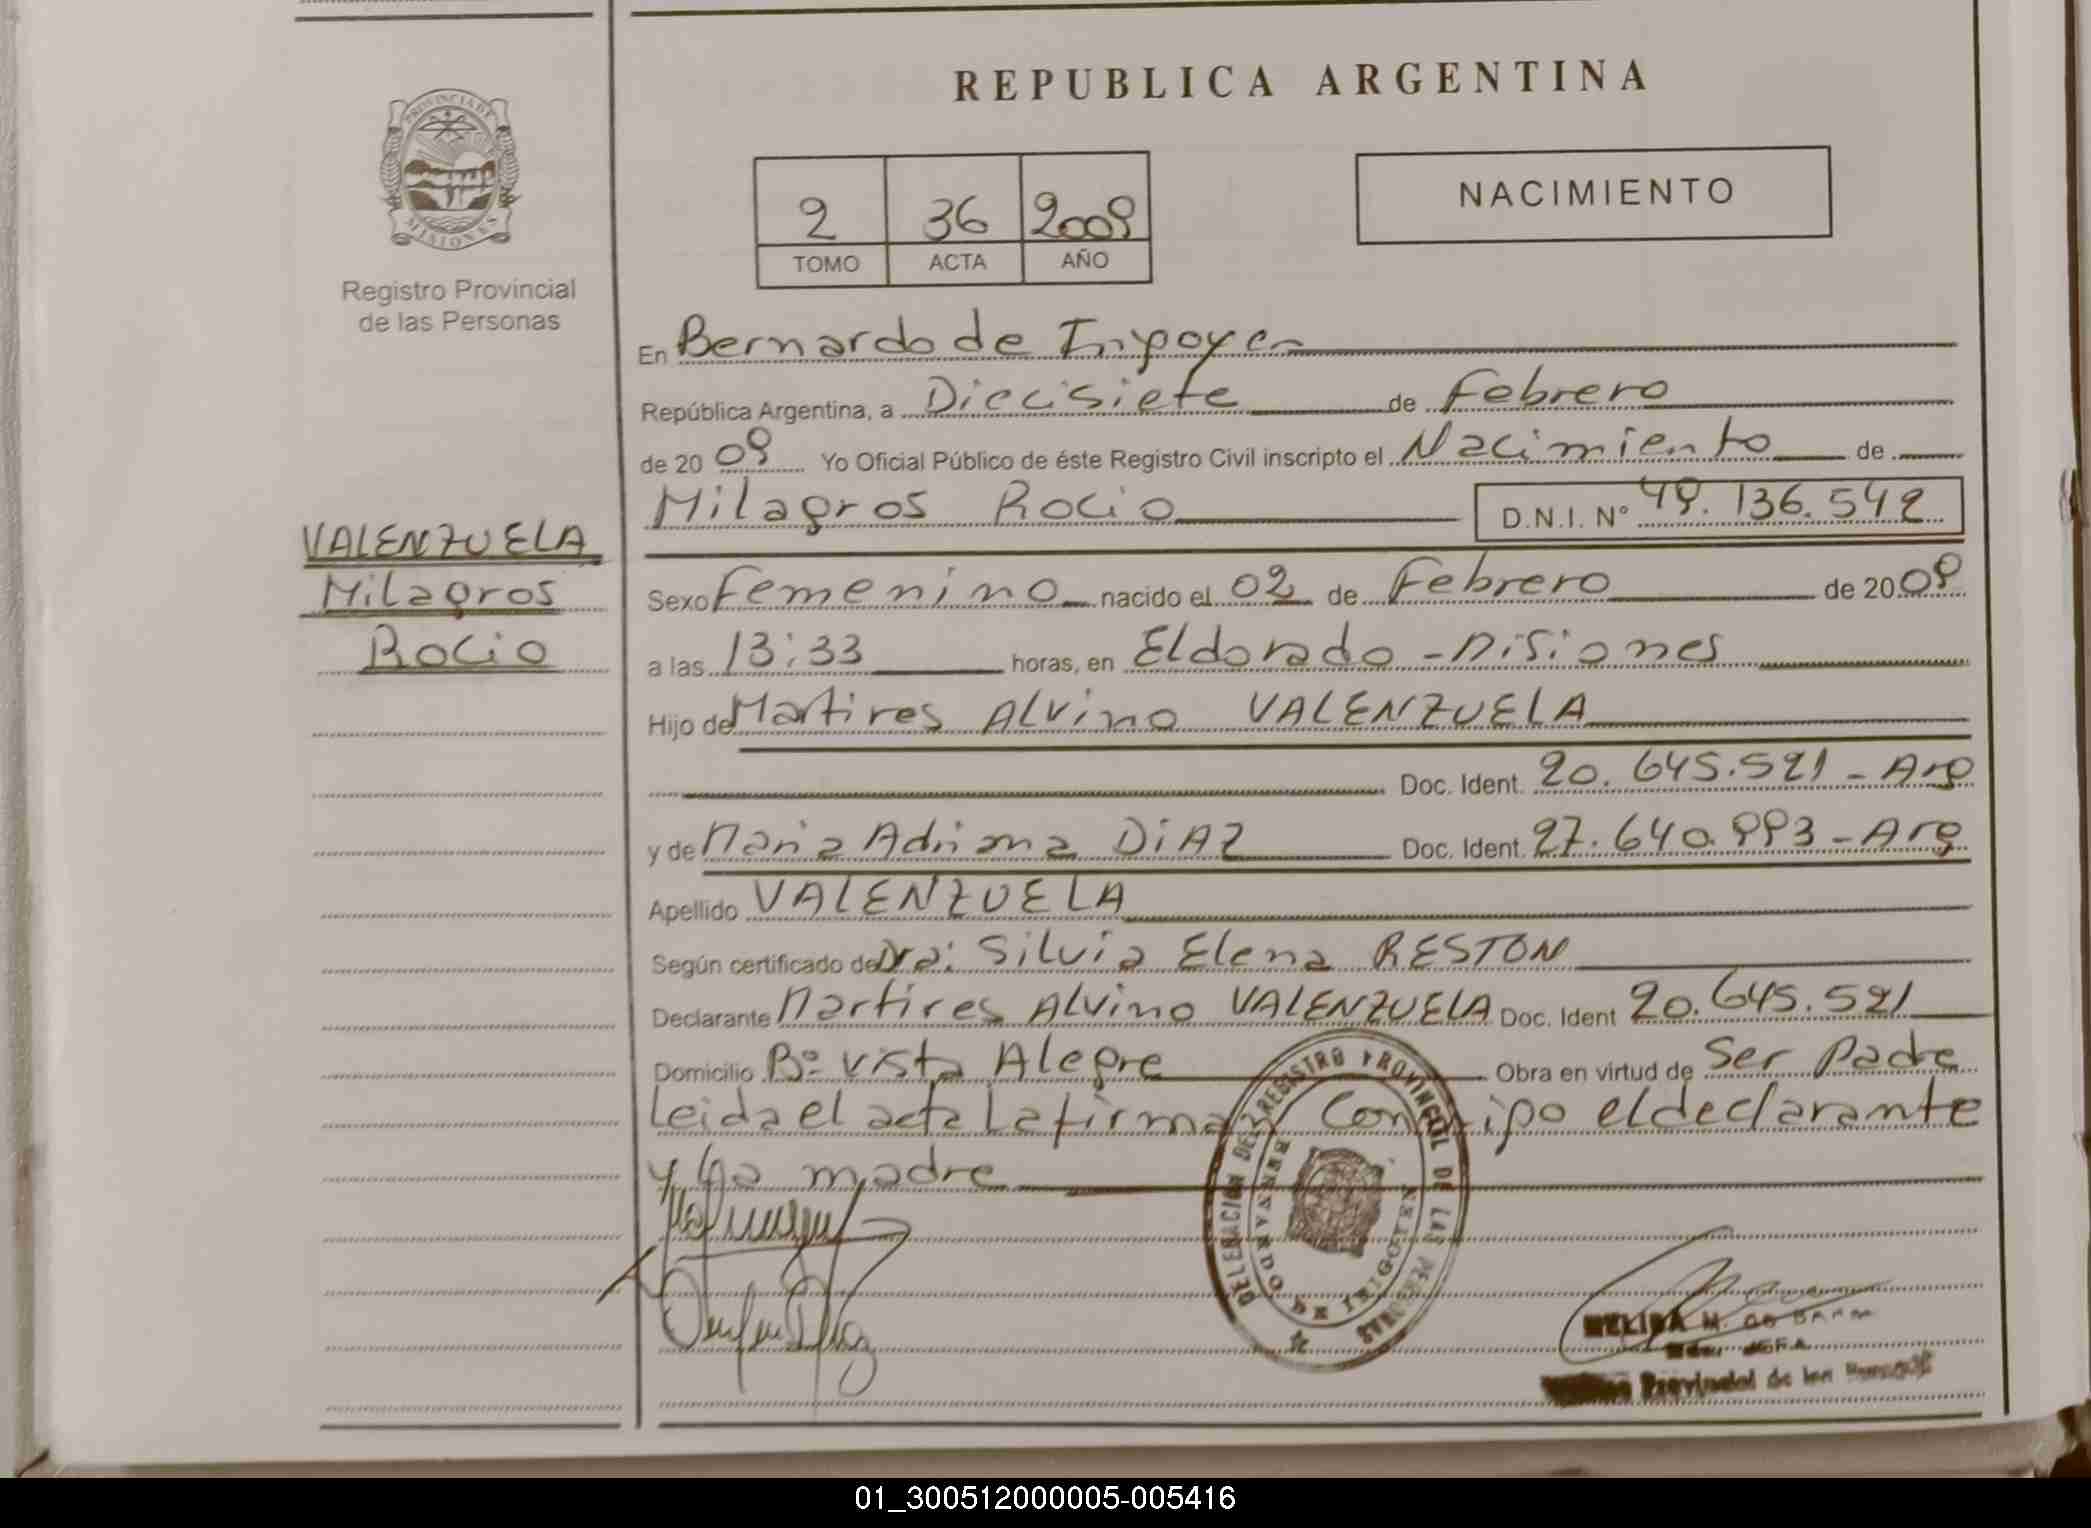 REPUBLICA ARGENTINA
PROVINCIA DE
MISIONES
Registro Provincial
de las Personas
2 36 2009
TOMO ACTA AÑO
NACIMIENTO
En Bernardo de Irigoyen
República Argentina, a Diecisiete de Febrero
de 20 09 Yo Oficial Público de éste Registro Civil inscripto el Nacimiento de
Milagros Rocio D.N.I. Nº 49.136.542
VALENZUELA
Milagros
Rocio
Sexo Femenino nacido el 02 de Febrero de 20 09
a las 13:33 horas, en Eldorado - Misiones
Hijo de Martires Alvino VALENZUELA
Doc. Ident. 20.645.521 - Arg
y de Maria Adriana DIAZ Doc. Ident. 27.640.993 - Arg
Apellido VALENZUELA
Según certificado de Dra: Silvia Elena RESTON
Declarante Martires Alvino VALENZUELA Doc. Ident 20.645.521
Domicilio Bº Vista Alegre Obra en virtud de Ser Padre
Leida el acta La firman Conmigo el declarante
y la madre
DELEGACION DEL REGISTRO PROVINCIAL DE LAS PERSONAS
BERNARDO DE IRIGOYEN
JEFA
Provincial de las Personas
01_300512000005-005416